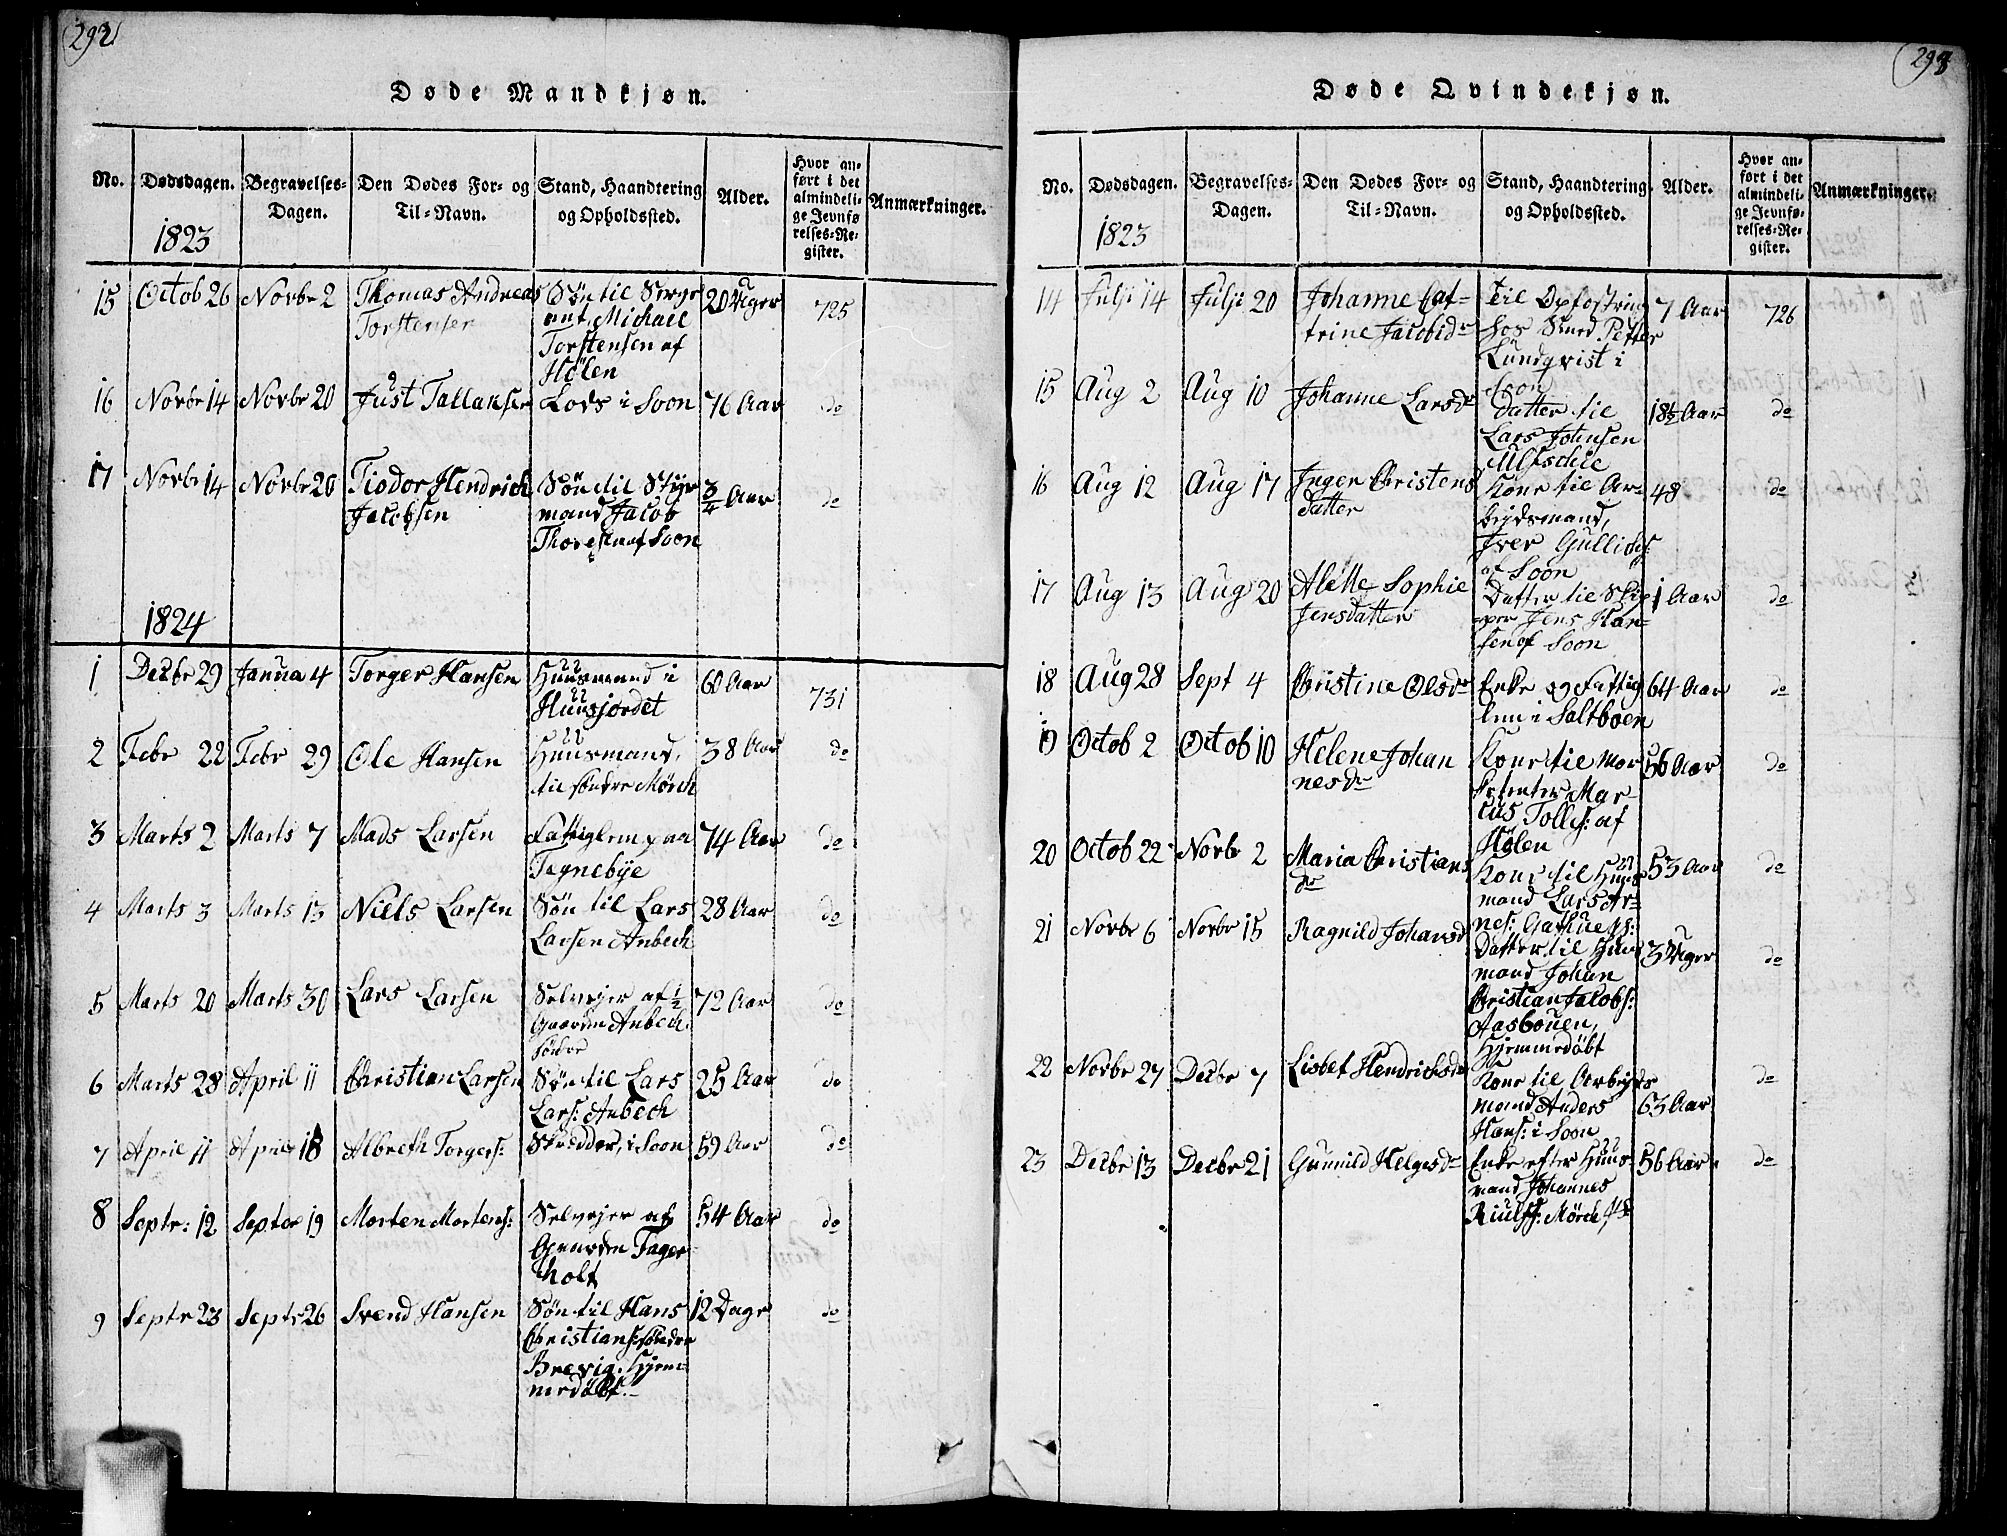 292
Døde Mandkjøn.
No. Dødsdagen. Begravelses-Dagen. Den Dødes For- og Til-Navn. Stand, Haandtering og Opholdssted. Alder. Hvor anført i det almindelige Jevnførelses-Register. Anmærkninger.
1823
15 Octob 26 Novbr 2 Thomas Andreas Søn til Serge 20 Uger 725
Torstensen ant Michael
Torstensen af
Hølen
16 Novbr 14 Novbr 20 Just Tallaksen Lods i Soon 76 Aar do
17 Novbr 14 Novbr 20 Tiodor Hendrich Søn til Styr 3/4 Aar do
Jacobsen mand Jacob
Thoresen af Soon
1824
1 Decbr 29 Janua 4 Torger Hansen Huusmand i 60 Aar 731
Huusjordet
2 Febr 22 Febr 29 Ole Hansen Huusmand, 38 Aar do
til søndre Mørch
3 Marts 2 Marts 7 Mads Larsen Fattiglem paa 74 Aar do
Tegnebÿe
4 Marts 3 Marts 13 Niels Larsen Søn til Lars 28 Aar do
Larsen Anbech
5 Marts 20 Marts 30 Lars Larsen Selvejer af 1/2 72 Aar do
Gaarden Anbech
søndre
6 Marts 28 April 11 Christian Larsen Søn til Lars 25 Aar do
Lars: Anbech
7 April 11 April 18 Albreth Torgers: Skredder, i Soon 59 Aar do
8 Septr: 12 Septbr 19 Morten Mortens: Selvejer af 54 Aar do
Gaarden Fager
holt
9 Septr 23 Septr 26 Svend Hansen Søn til Hans 12 Dage do
Christians: søndre
Brevig. Hjem-
medøbt.
293
Døde Qvindekjøn.
No. Dødsdagen. Begravelses-Dagen. Den Dødes For- og Til-Navn. Stand, Haandtering og Opholdssted. Alder. Hvor anført i det almindelige Jevnførelses-Register. Anmærkninger.
1823
14 Julji 14 Julji 20 Johanne Cat- til Opfostring 7 Aar 726
trine Jacobidr hos Smed Petter
Lundqvist i
Soon
15 Aug 2 Aug 10 Johanne Larsdr Datter til 18 1/2 Aar do
Lars Johnsen
16 Aug 12 Aug 17 Inger Christens Kone til Ar- 48 do
datter bejdsmand,
Iver Gullichs:
af Soon
17 Aug 13 Aug 20 Alette Sophie Datter til Skip- 1 Aar do
Jensdatter per Jens Han-
sen af Soon
18 Aug 28 Sept 4 Christine Olsdr Enke og Fattig 64 Aar do
lem i Saltboen
19 Octob 2 Octob 10 Helene Johan Kone til Mar 56 Aar do
nesdr ketenter Mar-
cus Tolles: af
Hølen
20 Octob 22 Novbr 2 Maria Christians Kone til Huus 53 Aar do
dr mand Lars Ar-
nes:
21 Novbr 6 Novbr 15 Ragnild Johansd Datter til Huus 3 Uger do
mand Johan
Christian Jacobs:
Aasbouen,
Hjemmedøbt
22 Novbr 27 Decbr 7 Lisbet Hendrichsdr Kone til Arbejds 63 Aar do
mand Anders
Hans: i Soon
23 Decbr 13 Decbr 21 Gunnild Helgesdr Enke efter Huus- 56 Aar do
mand Johannes
Riulfs: Mørch,